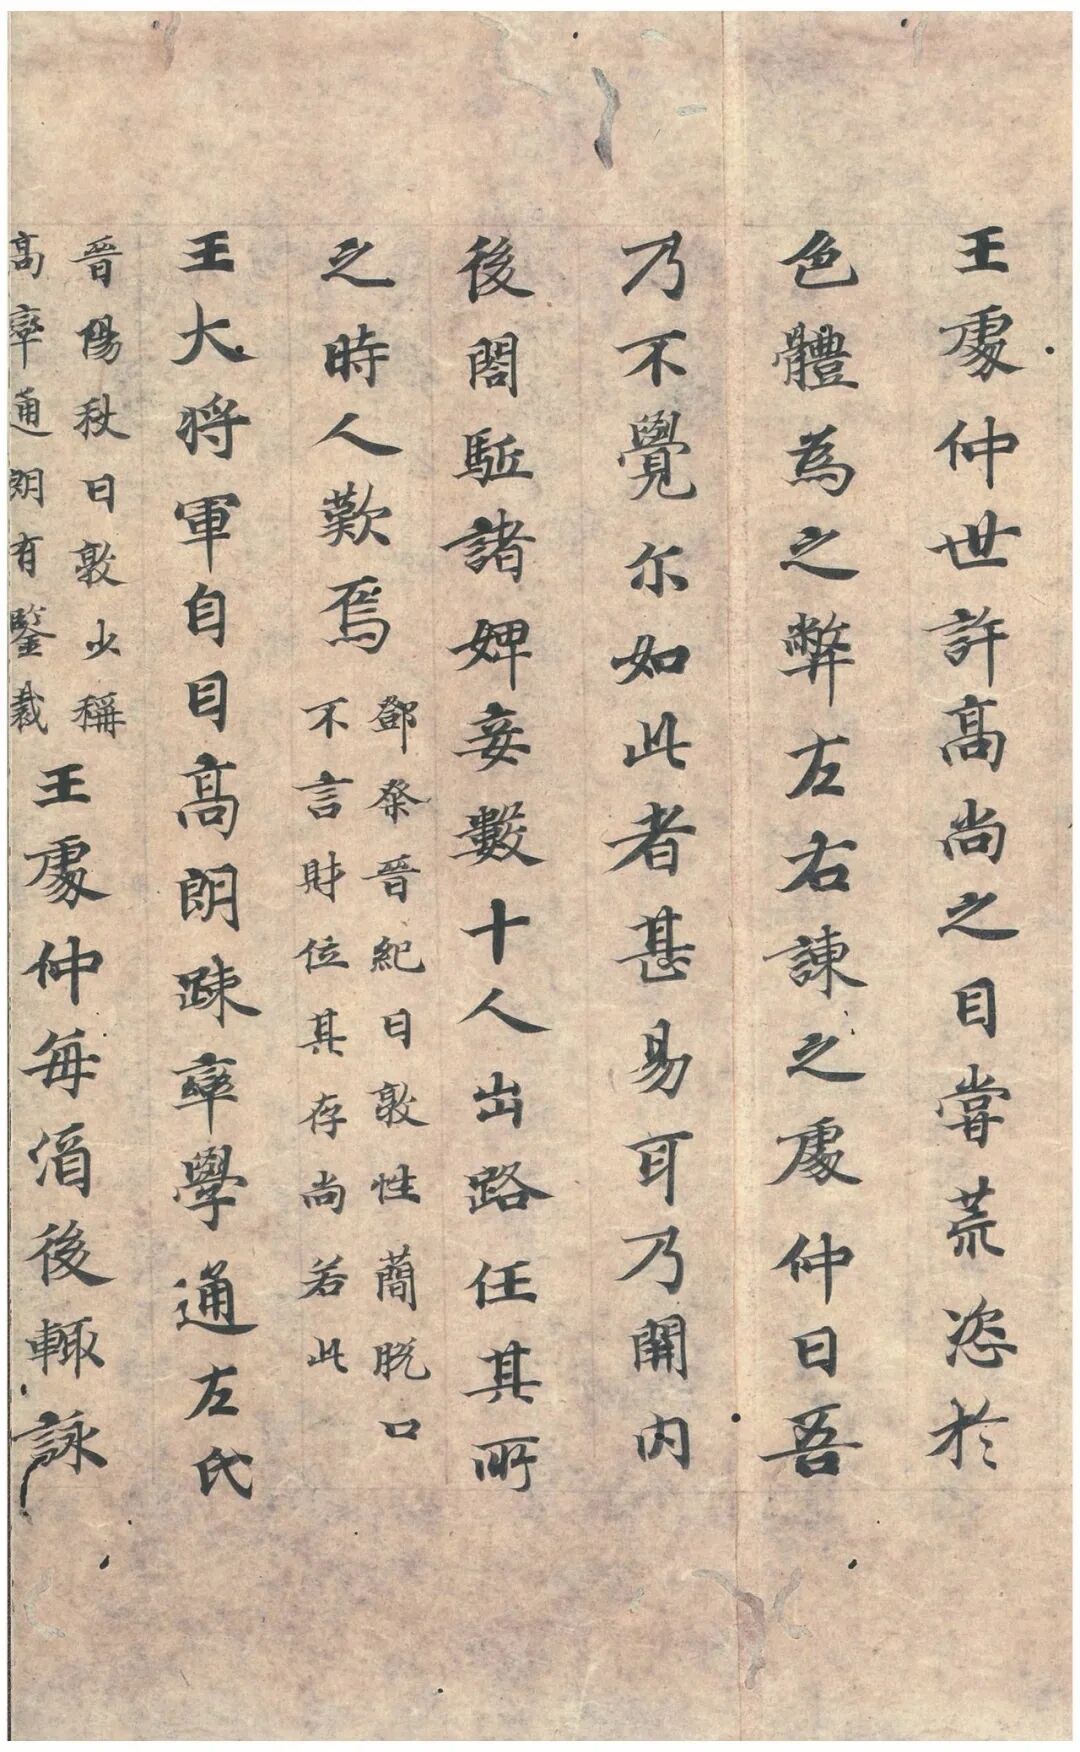 王處仲世許高尚之目甞荒恣於
色體為之弊左右諫之處仲曰吾
乃不覺尒如此者甚易耳乃開内
後閤駈諸婢妾數十人出路任其所
之時人歎焉
鄧粲晉紀曰敦性蕳脫口
不言財位其存尚若此
王大将軍自目高朗踈率學通左氏
晉陽秋曰敦少稱
高率通朗有鑒裁
王處仲每酒後輙詠